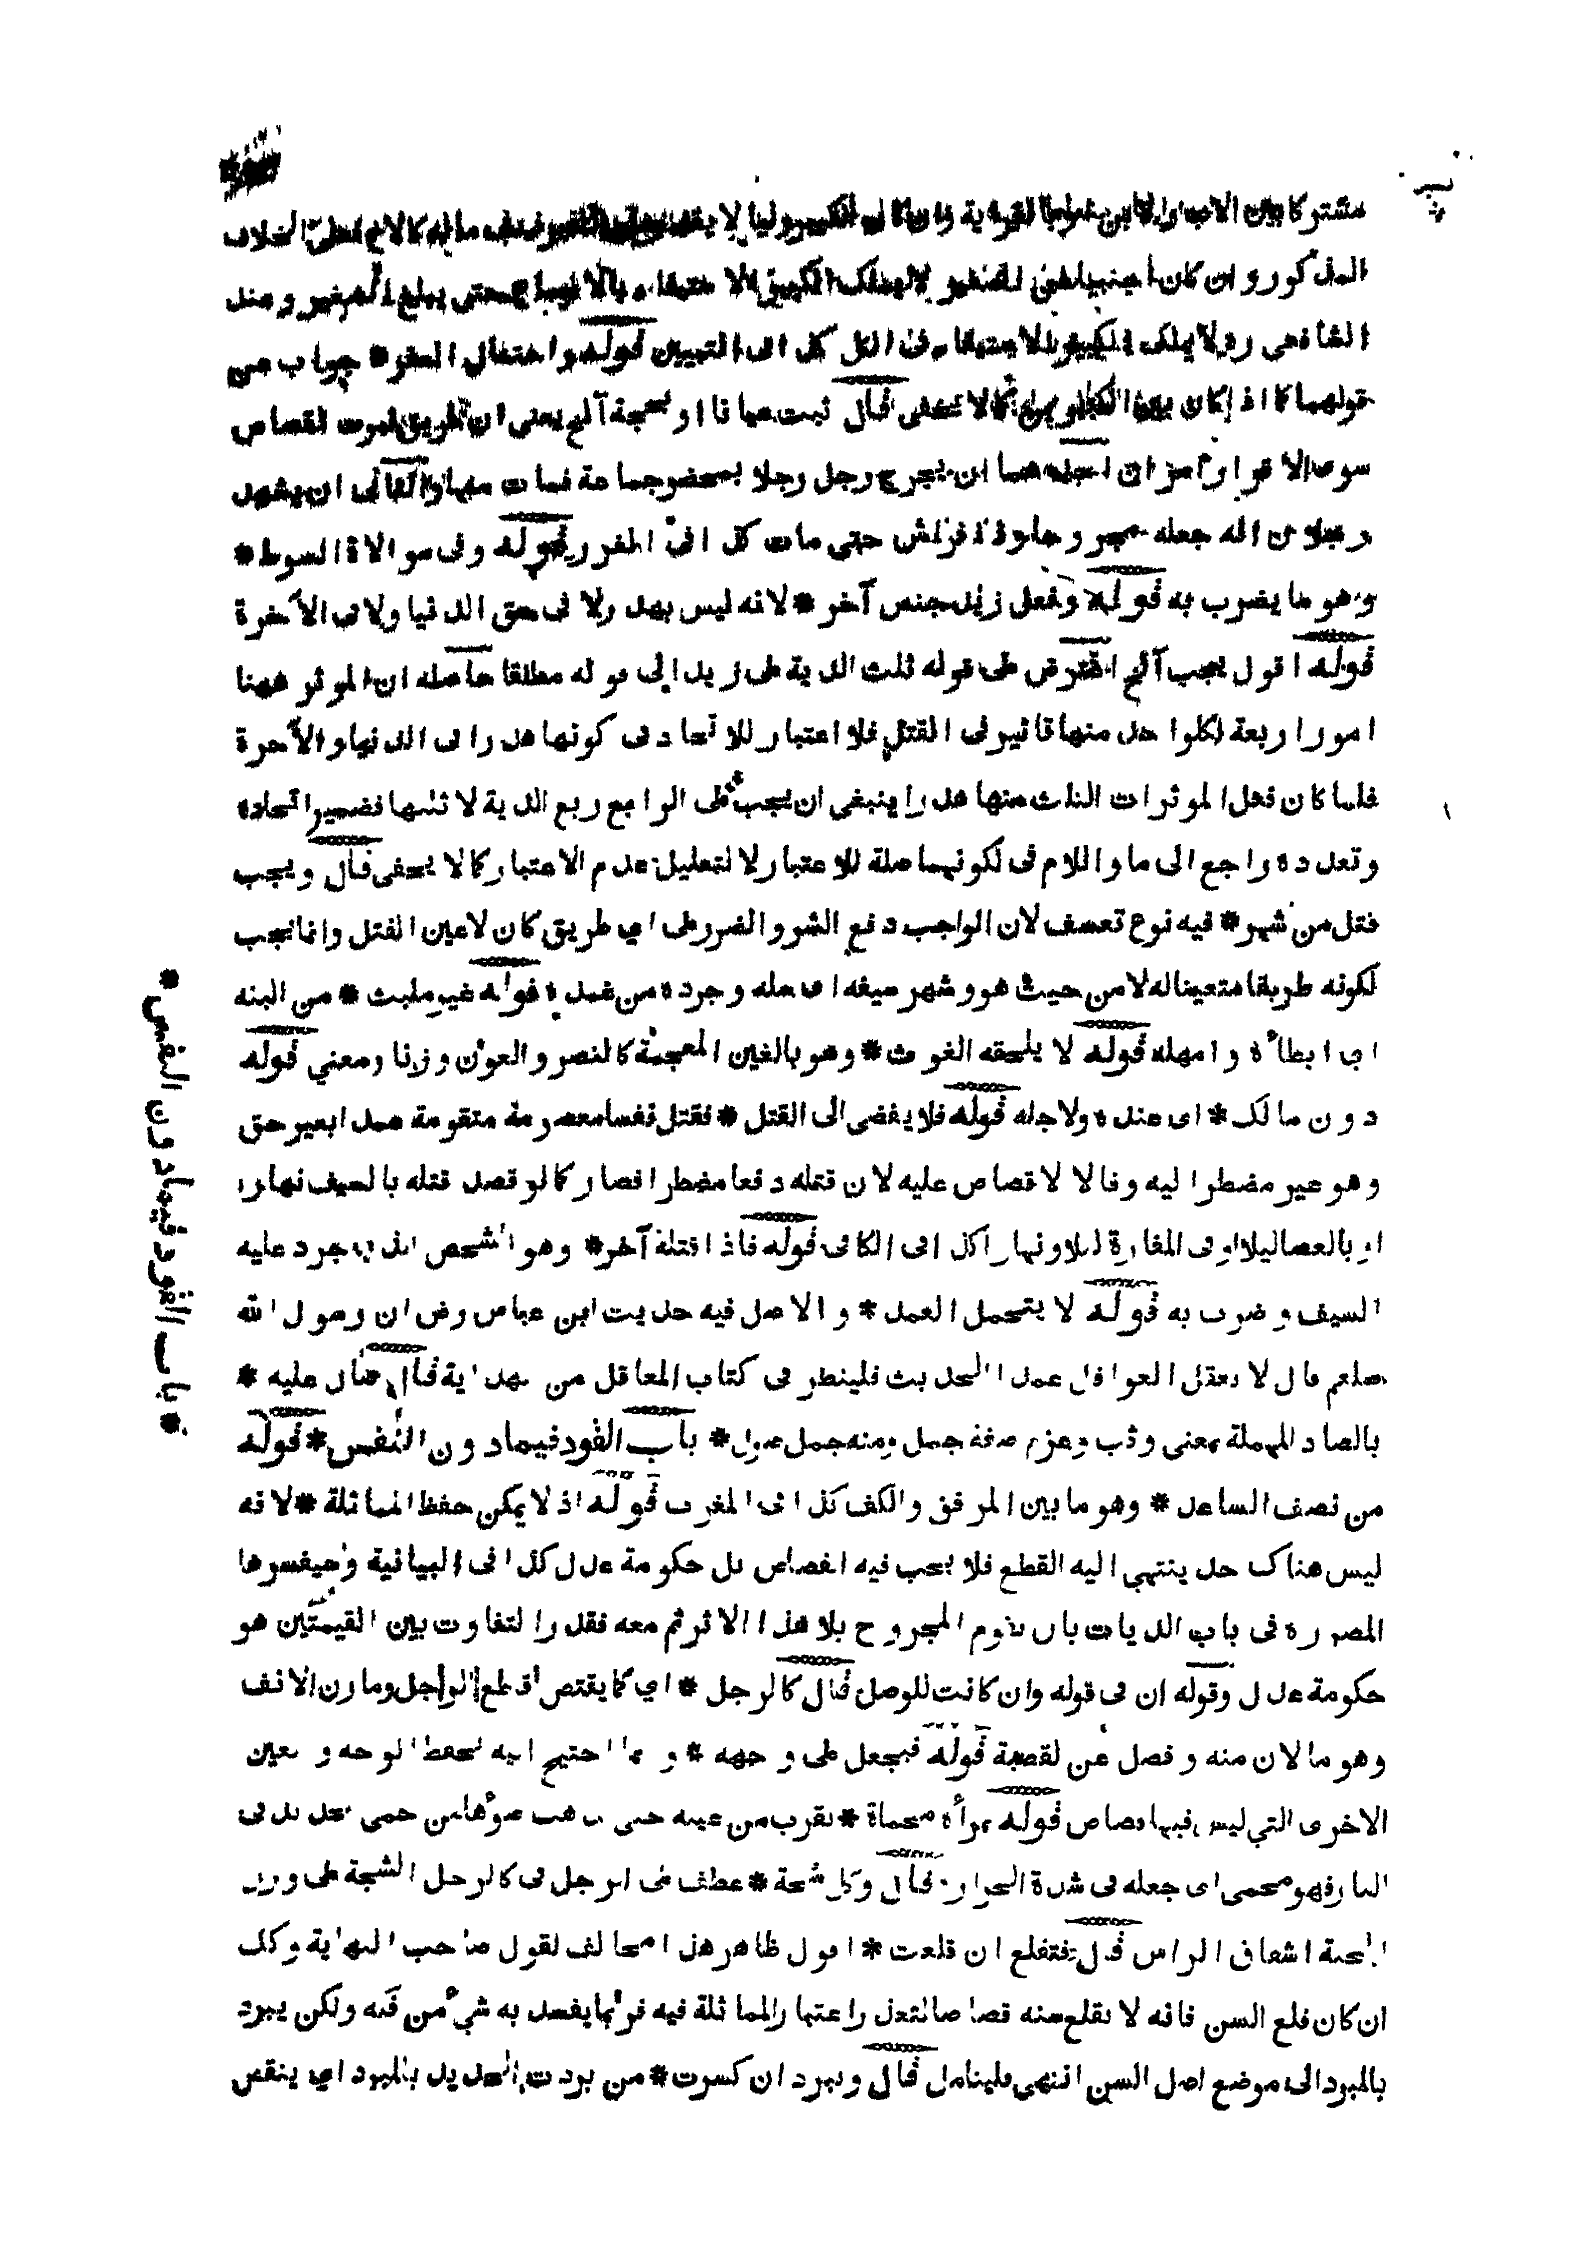 مشتركا بين الاب والابن
المذكور وان كان اجنبيا عن الصغير لا يملك الكبير الاستيفاء بالاجماع حتى يبلغ الصغير وعند
الشافعي رح لا يملك الكبير الاستيفاء في الكل كذا في التبيين قوله واحتمال العفو * جواب عن
قولهما كما اذا كان بين الكبيرين كما لا يخفى قال ثبت عيانا او بحجة آلخ يعني ان طريق ثبوت القصاص
سوى الاقرار امران احدهما ان يجرح رجل رجلا بمحضر جماعة فمات منها والثاني ان يشهد
رجلان انه جعله مجروحا وذا فراش حتى مات كذا في المغرر قوله وفي موالاة السوط *
وهو ما يضرب به قوله وفعل زيد جنس آخر * لانه ليس بهدر لا في حق الدنيا ولا في الآخرة
قوله اقول يجب آلخ اعترض على قوله ثلث الدية على زيد الى قوله مطلقا حاصله ان الموثر ههنا
امور اربعة لكل واحد منها تاثير في القتل فلا اعتبار للاتحاد في كونها هدرا في الدنيا والآخرة
فلما كان فعل الموثرات الثلث منها هدرا ينبغي ان يجب على الرابع ربع الدية لا ثلثها فضمير اتحاده
وتعدده راجع الى ما واللام في لكونها صلة للاعتبار لا لتعليل عدم الاعتبار كما لا يخفى قال ويجب
قتل من شهر * فيه نوع تعسف لان الواجب دفع الشر والضرر على اي طريق كان لا عين القتل وانما يجب
لكونه طريقا متعينا له لا من حيث هو وشهر سيفه اى سله وجرده من غمده قوله غير ملبث * من البثه
اى ابطأه وامهله قوله لا يلحقه الغوث * وهو بالغين المعجمة كالنصر والعون وزنا ومعنى قوله
دون مالك * اى عنده ولاجله قوله فلا يفضى الى القتل * فقتل نفسا معصومة متقومة عمدا بغير حق
وهو غير مضطر اليه وقالا لا قصاص عليه لان قتله دفعا مضطرا فصار كما لو قصد قتله بالسيف نهارا
او بالعصا ليلا او في المفازة ليلا ونهارا كذا في الكافي قوله فاذا قتله آخر * وهو الشخص الذي جرد عليه
السيف وضرب به قوله لا يتحمل العمد * والاصل فيه حديث ابن عباس رض ان رسول الله
صلعم قال لا يعقل العواقل عمدا الحديث فلينظر في كتاب المعاقل من الهداية قال صال عليه *
بالصاد المهملة بمعنى وثب وعزم صفة جمل ومنه جمل صول * باب القود فيما دون النفس * قوله
من نصف الساعد * وهو ما بين المرفق والكف كذا في المغرب قوله اذ لا يمكن حفظ المماثلة * لانه
ليس هناك حد ينتهي اليه القطع فلا يجب فيه القصاص بل حكومة عدل كذا في البيانية وسيفسرها
المص ره في باب الديات بان يقوم المجروح بلا هذا الاثر ثم معه فقدر التفاوت بين القيمتين هو
حكومة عدل وقوله ان في قوله وان كانت للوصل قال كالرجل * اي كما يقتص لقطع الرجل ومارن الانف
وهو ما لان منه وفصل عن القصبة قوله فيجعل على وجهه * وانما احتيج اليه لحفظ الوجه وعين
الاخرى التي ليس فيها قصاص قوله بمرأة محماة * تقرب من عينه حتى يذهب ضوءها من حمى الحديد في
النار فهو محمى اى جعله في شدة الحرارة قال وكل شجة * عطف على الرجل في كالرجل الشجة على وزن
الحبة اشعاف الراس قال فتقلع ان قلعت * اقول ظاهر هذا مخالف لقول صاحب النهاية وكذا
ان كان قلع السن فانه لا يقلع سنه قصاصا لتعذر اعتبار المماثلة فيه فربما يفسد به شيء من فكه ولكن يبرد
بالمبرد الى موضع اصل السن انتهى فليتامل قال ويبرد ان كسرت * من بردت الحديد بالمبرد اي ينقص
* باب القود فيما دون النفس *